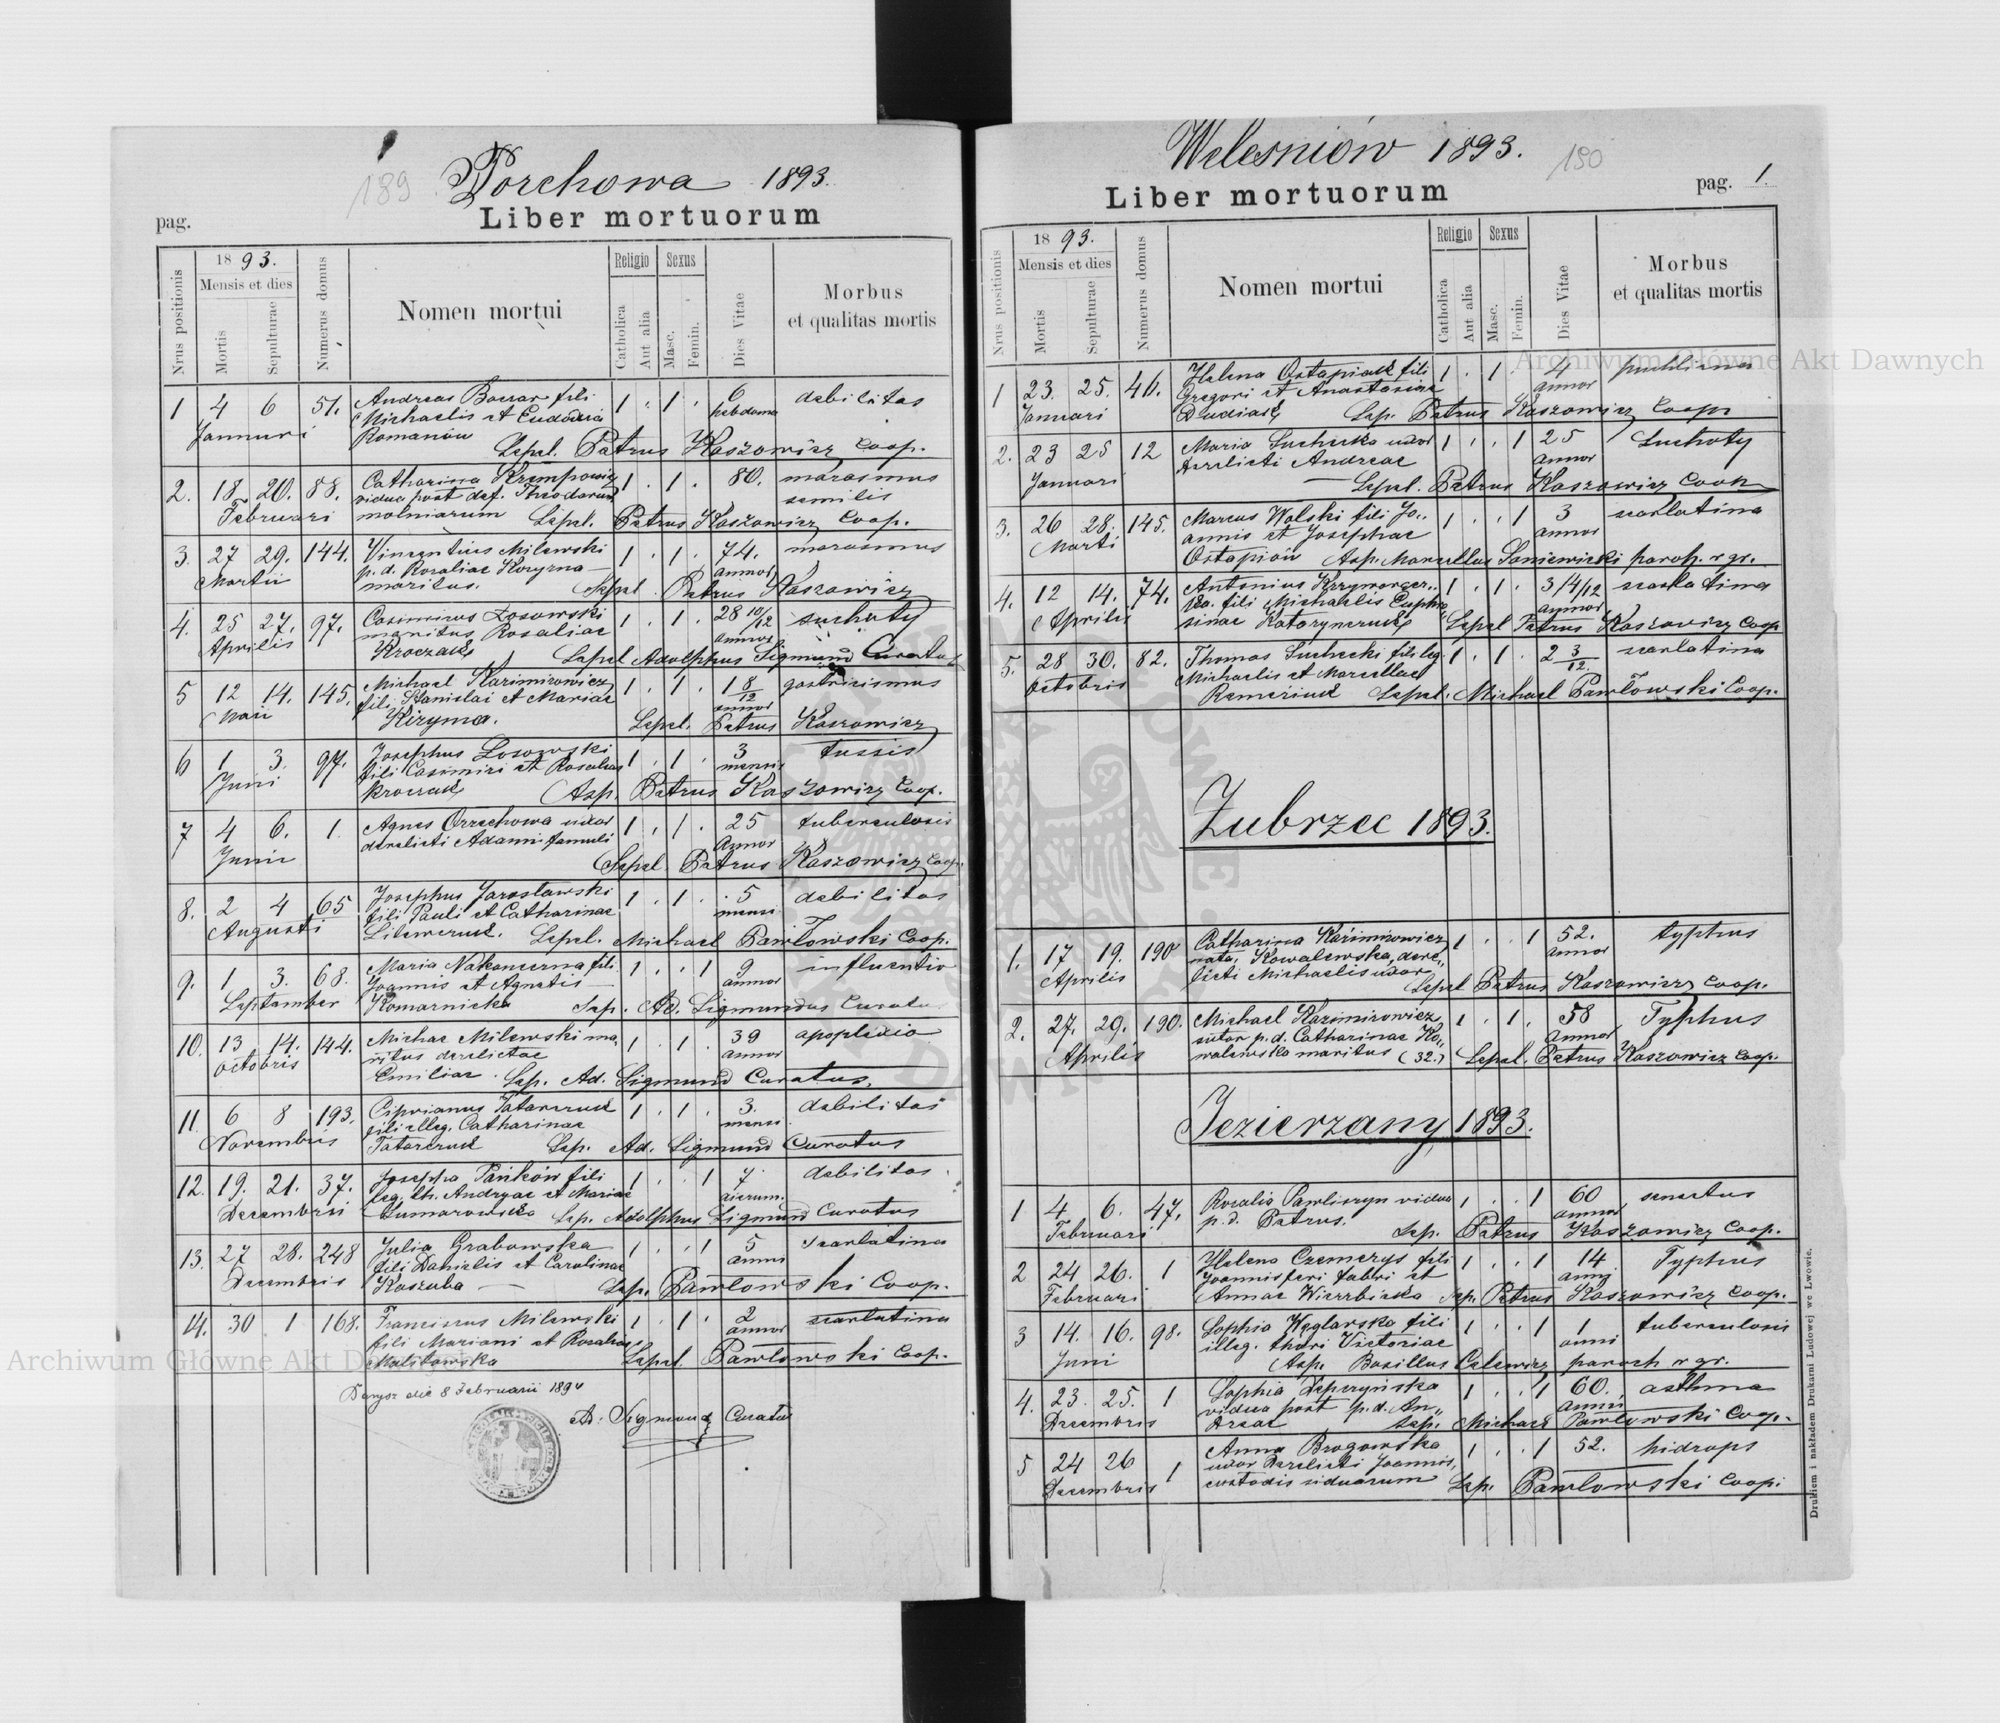 189 Porchowa 1893.
pag. Liber mortuorum
Nrus positionis
1893.
Mensis et dies
Mortis
Sepulturae
Numerus domus
Nomen mortui
Religio
Catholica
Aut alia
Sexus
Masc.
Femin.
Dies Vitae
Morbus
et qualitas mortis
1 4 6 51. Andreas fili 1 . 1 . 6 debilitas
Michaelis et hebdoma
Januari Romanów Sepel. Petrus Kaszowicz Coop.
2. 18. 20. 88. Catharina 1 . 1 . 80. marasmus
vidua post def. Theodorum senilis
Februari Sepel. Petrus Kaszowicz Coop.
3. 27 29. 144. Vincentius Milewski 1 . 1 . 74. marasmus
p. d. Rosaliae annor
Martii maritus. Sepel Petrus Kaszowicz
4. 25 27. 97. Casimirus Łosowski 1 . 1 . 28 10/12 suchoty
maritus Rosaliae annor
Aprilis Kroczak Sepel Adolphus Sigmund Curatus
5 12 14. 145. Michael Kazimirowicz 1 . 1 . 1 8/12 gastricismus
fili Stanislai et Mariae annor
Maii Kizyma. Sepel. Petrus Kaszowicz
6 1 3. 97. Josephus Łosowski 1 . 1 . 3 tussis
fili Casimiri et Rosaliae mensis
Juni Kroczak Asp. Petrus Kaszowicz Coop.
7 4 6. 1. Agnes Orzechowa uxor 1 . 1 . 25 tuberculosis
derelicti Adami famuli Annor
Junii Sepel. Petrus Kaszowicz Coop.
8. 2 4 65 Josephus Jarosławski 1 . 1 . 5 debilitas
fili Pauli et Catharinae mensi
Augusti Sepel. Michael Pawłowski Coop.
9. 1 3. 68. Maria Nakoneczna fili 1 . . 1 9 influentia
Joannis et Agnetis annor
September Komarnicka Sep. Ad. Sigmundus Curatu
10. 13 14. 144. Michae Milewski ma 1 . 1 . 39 apoplexio
ritus derelictae annor
Octobris Emiliae. Sep. Ad. Sigmund Curatus.
11. 6 8 193. Ciprianus Tatarczuk 1 . 1 . 3. debilitas
fili illeg. Catharinae mensi
Novembris Tatarczuk Sep. Ad. Sigmund Curatus
12. 19. 21. 37. Josepha Pańków fili 1 . . 1 7 debilitas
leg. th. Andreae et Mariae dierum.
Decembris Sep. Adolphus Sigmund Curatus
13. 27 28. 248 Julia Grabowska 1 . . 1 5 scarlatina
fili Danielis et Carolinae anni
Decembris Kaszuba Sep. Pawłowski Coop.
14. 30 1 168. Franciscus Milewski 1 . 1 . 2 scarlatina
fili Mariani et Rosaliae annor
Sepel. Pawłowski Coop.
die 8 Februarii 1894
Ad. Sigmund Curatus
Weleśniów 1893. 190
Liber mortuorum pag. 1.
Nrus positionis
1893.
Mensis et dies
Mortis
Sepulturae
Numerus domus
Nomen mortui
Religio
Catholica
Aut alia
Sexus
Masc.
Femin.
Dies Vitae
Morbus
et qualitas mortis
1 23. 25. 46. Helena Ostapiak fili 1 . 1 . 4
Gregori et Anastasiae annor
Januari Dudiak Sep. Petrus Kaszowicz Coop
2. 23 25 12 Maria Suchecka uxor 1 . . 1 25 Suchoty
derelicti Andreae annor
Januari Sepel. Petrus Kaszowicz Coop
3. 26 28. 145. Marcus Wolski fili Jo„ 1 . . 1 3 scarlatina
annis et Josephae annor
Marti Ostapiów Asp. Marcellus paroch. r. gr.
4. 12 14. 74. Antonius 1 . 1 . 3/4/12 scarlatina
fili Michaelis Euphro annor
Aprilis sinae Sepel Petrus Kaszowicz Coop
5. 28 30. 82. Thomas Suchecki fili leg. 1 . 1 . 2 3/12. scarlatina
Michaelis et Marcellae
Octobris Sepel. Michael Pawłowski Coop.
Zubrzec 1893.
1. 17 19. 190 Catharina Kazimirowicz 1 . . 1 52. typhus
nata Kowalewska, dere„ annor
Aprilis licti Michaelis uxor Sepel Petrus Kaszowicz Coop.
2. 27. 29. 190. Michael Kazimirowicz 1 . 1 . 58 Typhus
sutor p. d. Catharinae Ko„ Annor
Aprilis walewska maritus (32.) Sepel. Petrus Kaszowicz Coop.
Jezierzany 1893.
1 4 6. 47. Rozalia Pawliszyn vidua 1 . . 1 60 senectus
p. d. Petrus. annor
Februari Sep. Petrus Kaszowicz Coop.
2 24 26. 1 Helena Czemerys fili 1 . . 1 14 Typhus
Joannis feri fabri et anni
Februari Annae Wierzbicka Sep. Petrus Kaszowicz Coop.
3 14. 16. 98. Sophia Węglarska fili 1 . . 1 1 tuberculosis
illeg. thori Victoriae anni
Juni Asp. Basilius paroch r. gr.
4. 23. 25. 1 Sophia 1 . . 1 60. asthma
vidua post p. d. An„ annor
Decembris dreae Sep. Michael Pawłowski Coop.
5 24 26 1 Anna Brogowska 1 . . 1 52. hidrops
uxor Derelicti Joannis,
Decembris custodis Sep. Pawłowski Coop.
Drukiem i nakładem Drukarni Ludowej we Lwowie.
Archiwum Główne Akt Dawnych
Archiwum Główne Akt D